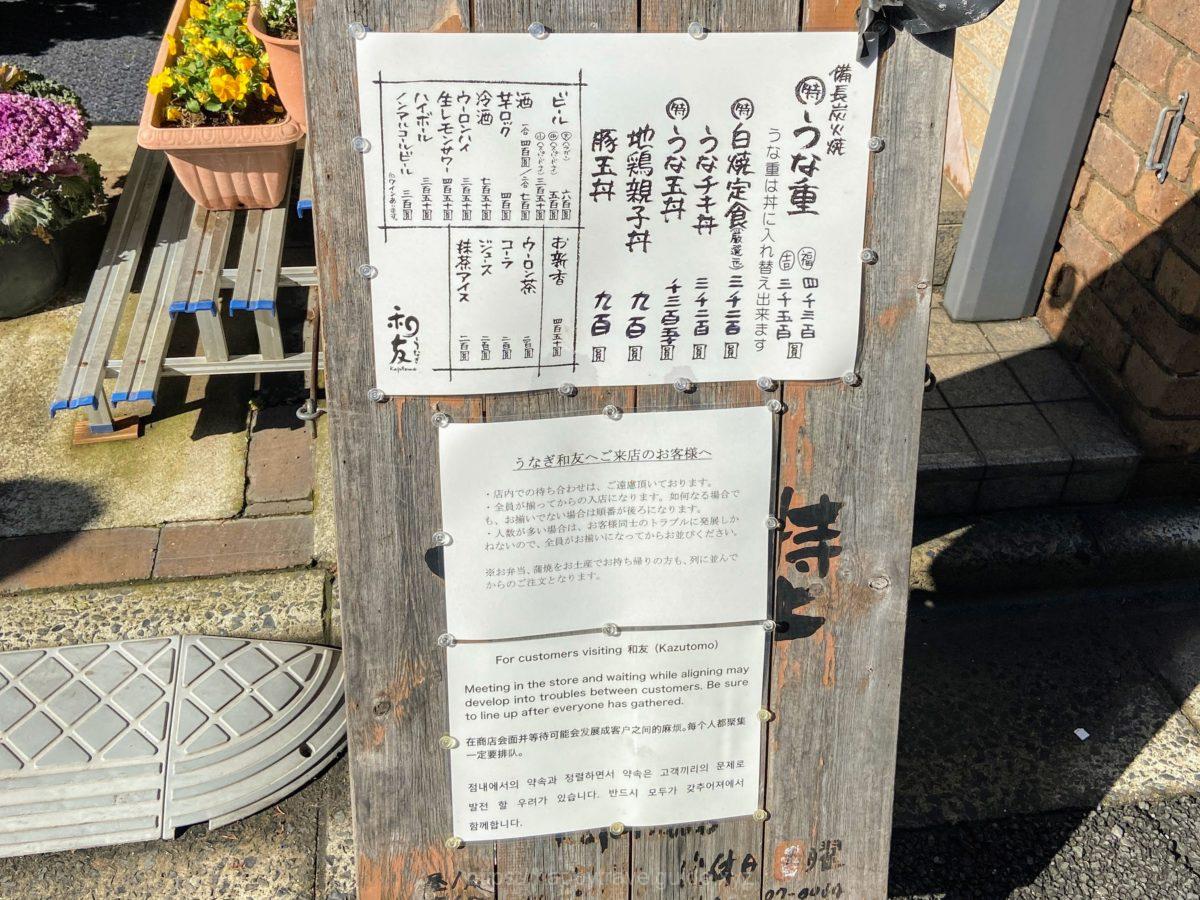 備長炭火焼
特 うな重 福 四千三百
吉 三千五百圓
うな重は丼に入れ替え出来ます
特 白焼定食(厳選西) 三千二百圓
うなチキ丼 三千二百圓
特 うな玉丼 千三百五十圓
地鶏親子丼 九百圓
豚玉丼 九百圓
ビール 六百圓
五百圓
三百五十圓
酒 一合 四百圓/二合 七百圓
芋ロック 四百圓
冷酒 七百圓
ウーロンハイ 三百五十圓
生レモンサワー 四百五十圓
ハイボール 三百五十圓
ノンアルコールビール 三百圓
ワインあります。
お新香 四百五十圓
ウーロン茶 二百圓
コーラ 二百圓
ジュース 二百圓
抹茶アイス 二百圓
うなぎ
和友
Kazutomo
うなぎ和友へご来店のお客様へ
・店内での待ち合わせは、ご遠慮頂いております。
・全員が揃ってからの入店になります。如何なる場合で
も、お揃いでない場合は順番が後ろになります。
・人数が多い場合は、お客様同士のトラブルに発展しか
ねないので、全員がお揃いになってからお並びください。
※お弁当、蒲焼をお土産でお持ち帰りの方も、列に並んで
からのご注文となります。
For customers visiting 和友 (Kazutomo)
Meeting in the store and waiting while aligning may
develop into troubles between customers. Be sure
to line up after everyone has gathered.
在商店会面并等待可能会发展成客户之间的麻烦。每个人都聚集
一定要排队。
점내에서의 약속과 정렬하면서 약속은 고객끼리의 문제로
발전 할 우려가 있습니다. 반드시 모두가 갖추어져에서
함께합니다.
特上